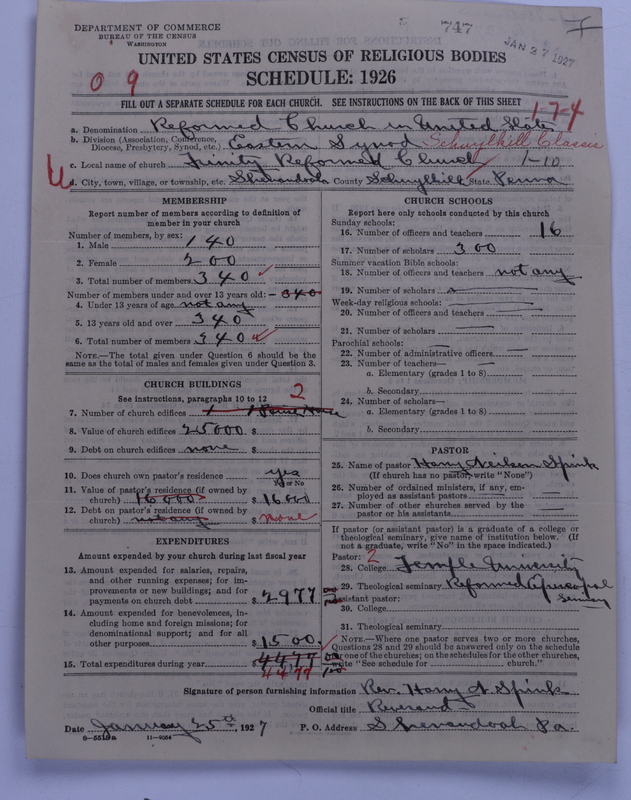 DEPARTMENT OF COMMERCE
BUREAU OF THE CENSUS
WASHINGTON
747
JAN 27 1927
UNITED STATES CENSUS OF RELIGIOUS BODIES
SCHEDULE: 1926
0 9
FILL OUT A SEPARATE SCHEDULE FOR EACH CHURCH. SEE INSTRUCTIONS ON THE BACK OF THIS SHEET
1-7-4
a. Denomination Reformed Church in United States
b. Division (Association, Conference, Diocese, Presbytery, Synod, etc.) Eastern Synod Schuylkill Classis
c. Local name of church Trinity Reformed Church 1-10
d. City, town, village, or township, etc. Shenandoah County Schuylkill State Penna
MEMBERSHIP
Report number of members according to definition of
member in your church
Number of members, by sex:
1. Male 140
2. Female 200
3. Total number of members 340
Number of members under and over 13 years old: 340
4. Under 13 years of age not any
5. 13 years old and over 340
6. Total number of members 340
NOTE.—The total given under Question 6 should be
same as the total of males and females given under Question 3.
CHURCH BUILDINGS
See instructions, paragraphs 10 to 12 2
7. Number of church edifices 1
8. Value of church edifices 25000 $
9. Debt on church edifices none $
10. Does church own pastor's residence yes
Yes or No
11. Value of pastor's residence (if owned by
church) 16000 $ 16000
12. Debt on pastor's residence (if owned by
church) not any $ none
EXPENDITURES
Amount expended by your church during last fiscal year
13. Amount expended for salaries, repairs,
and other running expenses; for im-
provements or new buildings; and for
payments on church debt $ 2977
14. Amount expended for benevolences, in-
cluding home and foreign missions; for
denominational support; and for all
other purposes $ 1500
15. Total expenditures during year $ 4477
4477
CHURCH SCHOOLS
Report here only schools conducted by this church
Sunday schools:
16. Number of officers and teachers 16
17. Number of scholars 300
Summer vacation Bible schools:
18. Number of officers and teachers not any
19. Number of scholars
Week-day religious schools:
20. Number of officers and teachers
21. Number of scholars
Parochial schools:
22. Number of administrative officers
23. Number of teachers—
a. Elementary (grades 1 to 8)
b. Secondary
24. Number of scholars—
a. Elementary (grades 1 to 8)
b. Secondary
PASTOR
25. Name of pastor Harry Neilson Spink
(If church has no pastor, write "None")
26. Number of ordained ministers, if any, em-
ployed as assistant pastors
27. Number of other churches served by the
pastor or his assistants
If pastor (or assistant pastor) is a graduate of a college or
theological seminary, give name of institution below. (If
not a graduate, write "No" in the space indicated.)
Pastor: 2
28. College Temple University
29. Theological seminary Reformed Episcopal
Seminary
Assistant pastor:
30. College
31. Theological seminary
NOTE.—Where one pastor serves two or more churches,
Questions 28 and 29 should be answered only on the schedule
for one of the churches; on the schedules for the other churches,
write "See schedule for church."
Signature of person furnishing information Rev. Harry N. Spink
Official title Reverend
Date January 25th, 1927 P. O. Address Shenandoah Pa.
8-5519a 11-9054